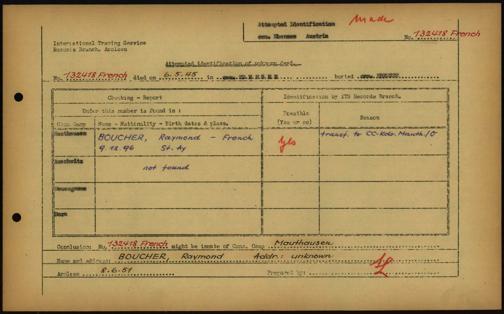 Attempted Identification Made
com. Ebensee Austria
No. 132418 French
International Tracing Service
Records Branch, Arolsen
Attempted identification of unknown dead.
No. 132418 French died on 6.5.45 in com. EBENSEE buried com. EBENSEE
Checking - Report
Identification by ITS Records Branch.
Under this number is found in :
Possible
(Yes or no)
Reason
Conc Camp
Name - Nationality - Birth dates & place.
Mauthausen
BOUCHER, Raymond - French
Yes
transf. to CC-Kdo. Mauth./
9.12.96 St. Ay
Auschwitz
not found
Neuengamme
Dora
Conclusion: No. 132418 French might be inmate of Conc. Camp Mauthausen
Name and address: BOUCHER, Raymond Addr.: unknown
Arolsen 8.6.51
Prepared by: